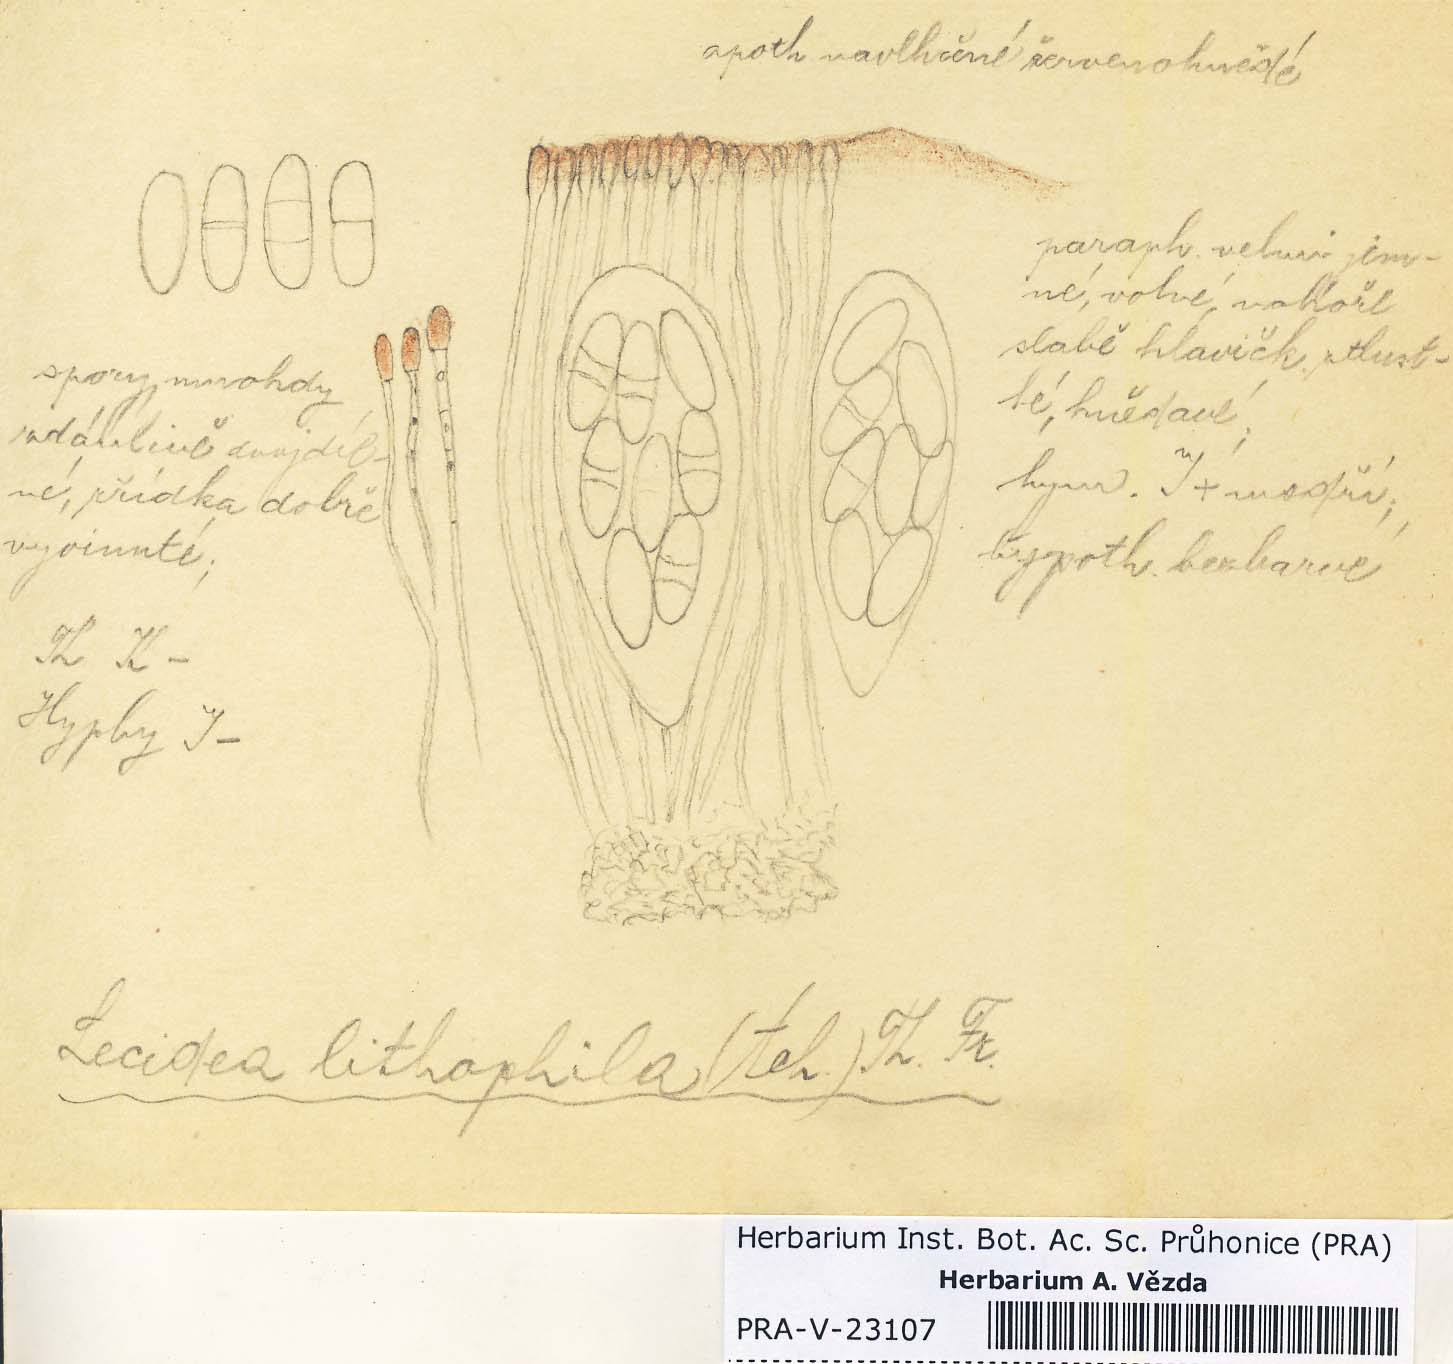 apoth navlhčené červenohnědé
paraph. velmi jem-
né, volné, nahoře
slabě hlavičk. ztlust-
lé, hnědavé;
hym. J+ modři;
hypoth. bezbarvé
spory mnohdy
zdánlivě dvojdíl-
né, přídka dobře
vyvinuté;
Th K-
Hyphy J-
Lecidea lithophila (Ach.) Th. Fr.
Herbarium Inst. Bot. Ac. Sc. Průhonice (PRA)
Herbarium A. Vězda
PRA-V-23107